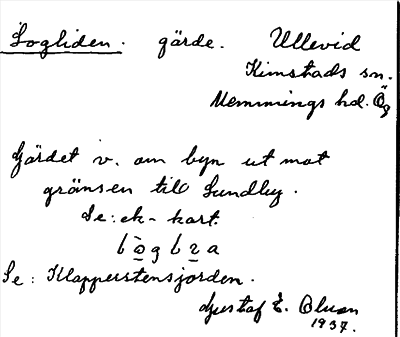 Logliden. gärde. Ullevid
Kimstads sn.
Memmings hd. Ög
Gärdet v. om byn ut mot
gränsen till Lundby.
Se: ek-kart.
Se: Klapperstensjorden.
Gustaf E. Olsson
1937.